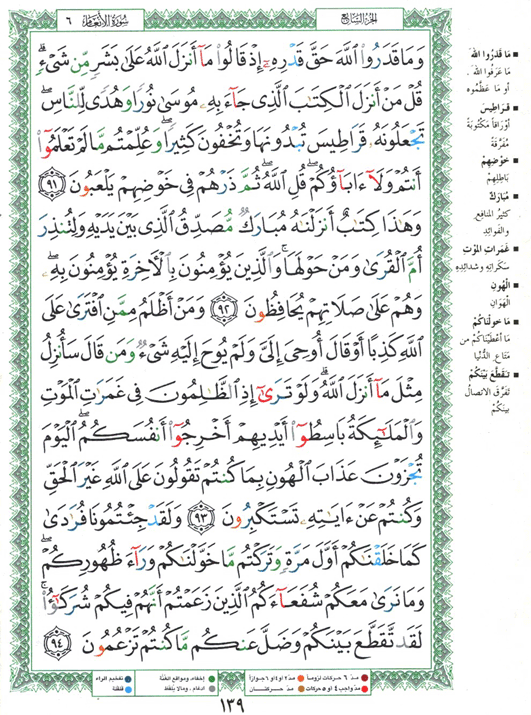 سورة الأنعام ٦
الجزء السابع
وَمَا قَدَرُوا۟ ٱللَّهَ حَقَّ قَدْرِهِۦٓ إِذْ قَالُوا۟ مَآ أَنزَلَ ٱللَّهُ عَلَىٰ بَشَرٍ مِّن شَىْءٍ ۗ
قُلْ مَنْ أَنزَلَ ٱلْكِتَٰبَ ٱلَّذِى جَآءَ بِهِۦ مُوسَىٰ نُورًا وَهُدًى لِّلنَّاسِ ۖ
تَجْعَلُونَهُۥ قَرَاطِيسَ تُبْدُونَهَا وَتُخْفُونَ كَثِيرًا ۖ وَعُلِّمْتُم مَّا لَمْ تَعْلَمُوٓا۟
أَنتُمْ وَلَآ ءَابَآؤُكُمْ ۖ قُلِ ٱللَّهُ ۖ ثُمَّ ذَرْهُمْ فِى خَوْضِهِمْ يَلْعَبُونَ ٩١
وَهَٰذَا كِتَٰبٌ أَنزَلْنَٰهُ مُبَارَكٌ مُّصَدِّقُ ٱلَّذِى بَيْنَ يَدَيْهِ وَلِتُنذِرَ
أُمَّ ٱلْقُرَىٰ وَمَنْ حَوْلَهَا ۚ وَٱلَّذِينَ يُؤْمِنُونَ بِٱلْءَاخِرَةِ يُؤْمِنُونَ بِهِۦ ۖ
وَهُمْ عَلَىٰ صَلَاتِهِمْ يُحَافِظُونَ ٩٢ وَمَنْ أَظْلَمُ مِمَّنِ ٱفْتَرَىٰ عَلَى
ٱللَّهِ كَذِبًا أَوْ قَالَ أُوحِىَ إِلَىَّ وَلَمْ يُوحَ إِلَيْهِ شَىْءٌ وَمَن قَالَ سَأُنزِلُ
مِثْلَ مَآ أَنزَلَ ٱللَّهُ ۗ وَلَوْ تَرَىٰٓ إِذِ ٱلظَّٰلِمُونَ فِى غَمَرَٰتِ ٱلْمَوْتِ
وَٱلْمَلَٰٓئِكَةُ بَاسِطُوٓا۟ أَيْدِيهِمْ أَخْرِجُوٓا۟ أَنفُسَكُمُ ۖ ٱلْيَوْمَ
تُجْزَوْنَ عَذَابَ ٱلْهُونِ بِمَا كُنتُمْ تَقُولُونَ عَلَى ٱللَّهِ غَيْرَ ٱلْحَقِّ
وَكُنتُمْ عَنْ ءَايَٰتِهِۦ تَسْتَكْبِرُونَ ٩٣ وَلَقَدْ جِئْتُمُونَا فُرَٰدَىٰ
كَمَا خَلَقْنَٰكُمْ أَوَّلَ مَرَّةٍ وَتَرَكْتُم مَّا خَوَّلْنَٰكُمْ وَرَآءَ ظُهُورِكُمْ ۖ
وَمَا نَرَىٰ مَعَكُمْ شُفَعَآءَكُمُ ٱلَّذِينَ زَعَمْتُمْ أَنَّهُمْ فِيكُمْ شُرَكَٰٓؤُا۟ ۚ
لَقَد تَّقَطَّعَ بَيْنَكُمْ وَضَلَّ عَنكُم مَّا كُنتُمْ تَزْعُمُونَ ٩٤
مَا قَدَرُوا الله
مَا عَرَفُوا الله
أو مَا عَظَّمُوه
قَرَاطِيسَ
أوْرَاقًا مَكْتُوبَةً
مُفَرَّقَة
خَوْضِهِمْ
بَاطِلِهِمْ
مُبَارَكٌ
كَثِيرُ المَنَافِعِ
والفَوَائِدِ
غَمَرَاتِ المَوْتِ
سَكَرَاتِهِ وشَدَائِدِهِ
الْهُونِ
الْهَوَانِ
مَا خَوَّلْنَاكُمْ
مَا أَعْطَيْنَاكُمْ من
مَتَاعِ الدُّنْيَا
تَقَطَّعَ بَيْنَكُمْ
تَفَرَّقَ الاتِّصَالُ
بَيْنَكُمْ
مدّ ٦ حركات لزوماً
مدّ ٢ أو ٤ أو ٦ جوازاً
إخفاء، ومواقع الغُنَّة
تفخيم الراء
مدّ واجب ٤ أو ٥ حركات
مدّ حركتان
ادغام، ومالا يُلفظ
قلقلة
١٣٩